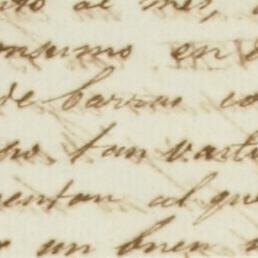 al mes,
onsumo en
de barras co
tan vast
entan al que
un buen